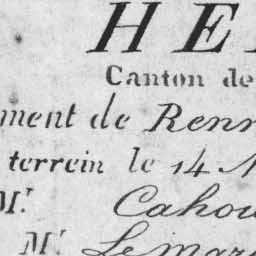 HE
Canton de
ment de Renn
terrein le 14
Mr. Cahou
Mr. Lemar